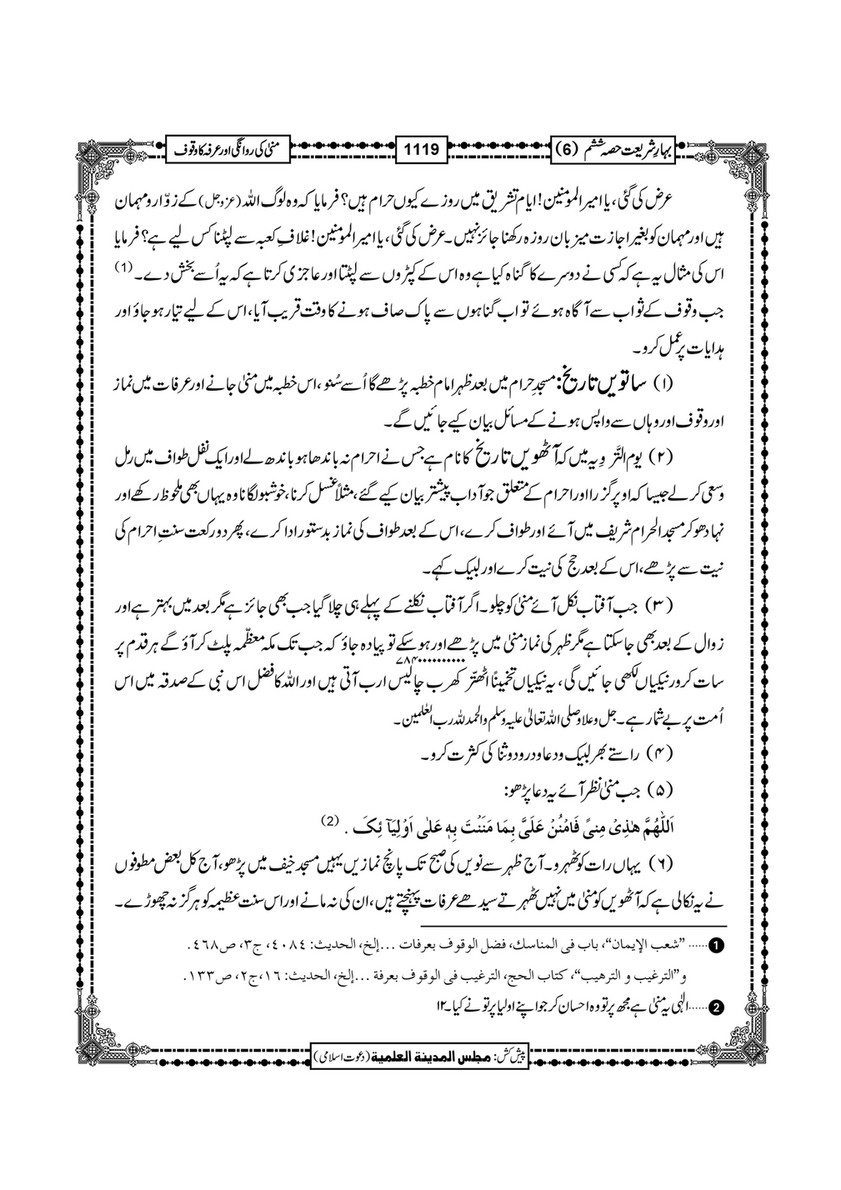 بہارِ شریعت حصہ ششم (6)
1119
منیٰ کی روانگی اور عرفہ کا وقوف
عرض کی گئی، یا امیر المؤمنین! ایام تشریق میں روزے کیوں حرام ہیں؟ فرمایا کہ وہ لوگ اللہ (عزوجل) کے زوّار و مہمان
ہیں اور مہمان کو بغیر اجازت میزبان روزہ رکھنا جائز نہیں۔ عرض کی گئی، یا امیر المؤمنین! غلافِ کعبہ سے لپٹنا کس لیے ہے؟ فرمایا
اس کی مثال یہ ہے کہ کسی نے دوسرے کا گناہ کیا ہے وہ اس کے کپڑوں سے لپٹتا اور عاجزی کرتا ہے کہ یہ اُسے بخش دے۔ (1)
جب وقوف کے ثواب سے آگاہ ہوئے تو اب گناہوں سے پاک صاف ہونے کا وقت قریب آیا، اس کے لیے تیار ہو جاؤ اور
ہدایات پر عمل کرو۔
(۱) ساتویں تاریخ: مسجدِ حرام میں بعد ظہر امام خطبہ پڑھے گا اُسے سُنو، اس خطبہ میں منیٰ جانے اور عرفات میں نماز
اور وقوف اور وہاں سے واپس ہونے کے مسائل بیان کیے جائیں گے۔
(۲) یوم التَّروِیہ میں کہ آٹھویں تاریخ کا نام ہے جس نے احرام نہ باندھا ہو باندھ لے اور ایک نفل طواف میں رمل
وسعی کر لے جیسا کہ اوپر گزرا اور احرام کے متعلق جو آداب پیشتر بیان کیے گئے، مثلاً غسل کرنا، خوشبو لگانا وہ یہاں بھی ملحوظ رکھے اور
نہا دھو کر مسجد الحرام شریف میں آئے اور طواف کرے، اس کے بعد طواف کی نماز بدستور ادا کرے، پھر دو رکعت سنتِ احرام کی
نیت سے پڑھے، اس کے بعد حج کی نیت کرے اور لبیک کہے۔
(۳) جب آفتاب نکل آئے منیٰ کو چلو۔ اگر آفتاب نکلنے کے پہلے ہی چلا گیا جب بھی جائز ہے مگر بعد میں بہتر ہے اور
زوال کے بعد بھی جا سکتا ہے مگر ظہر کی نماز منیٰ میں پڑھے اور ہو سکے تو پیادہ جاؤ کہ جب تک مکہ معظّمہ پلٹ کر آؤ گے ہر قدم پر
سات کرور نیکیاں لکھی جائیں گی، یہ نیکیاں تخمیناً اٹھتّر کھرب چالیس ارب آتی ہیں اور اللہ کا فضل اس نبی کے صدقہ میں اس
اُمت پر بے شمار ہے۔ جل وعلا و صلی اللہ تعالیٰ علیہ وسلم والحمد للہ رب العٰلمین۔
(۴) راستے بھر لبیک و دعا و درود و ثنا کی کثرت کرو۔
(۵) جب منیٰ نظر آئے یہ دعا پڑھو:
اَللّٰهُمَّ هٰذِیْ مِنیً فَامْنُنْ عَلَیَّ بِمَا مَنَنْتَ بِهٖ عَلٰی اَوْلِیَآ ئِکَ . (2)
(۶) یہاں رات کو ٹھہرو۔ آج ظہر سے نویں کی صبح تک پانچ نمازیں یہیں مسجد خیف میں پڑھو، آج کل بعض مطوفوں
نے یہ نکالی ہے کہ آٹھویں کو منیٰ میں نہیں ٹھہرتے سیدھے عرفات پہنچتے ہیں، ان کی نہ مانے اور اس سنت عظیمہ کو ہرگز نہ چھوڑے۔
1 ...... ”شعب الإیمان“، باب فی المناسک، فضل الوقوف بعرفات ...إلخ، الحدیث: ٤٠٨٤، ج٣، ص٤٦٨.
و”الترغیب و الترهیب“، کتاب الحج، الترغیب فی الوقوف بعرفة ...إلخ، الحدیث: ١٦، ج٢، ص١٣٣.
2 ......الٰہی یہ منیٰ ہے مجھ پر تو وہ احسان کر جو اپنے اولیا پر تو نے کیا۔۱۲
پیش کش: مجلس المدینۃ العلمیۃ (دعوت اسلامی)